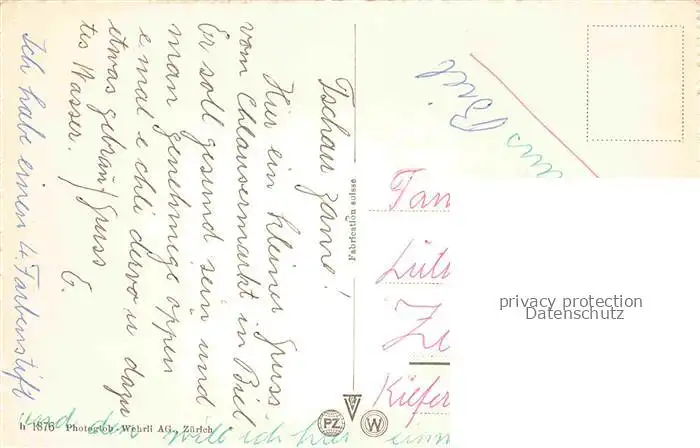 Tschau zäme!
Hier ein kleiner Gruss
vom Chlausermarkt in Biel
Er soll gesund sein und
man genehmige öppen
e mal e chli dervo u dazu
etwas gebranntes
Wasser. Gruss
E.
Ich habe einen 4 Farbenstift
und den will ich hier
aus Biel
Fam
Zü
Kiefer
Fabrication suisse
h 1876 Photoglob-Wehrli AG., Zürich
PZ
W
privacy protection
Datenschutz